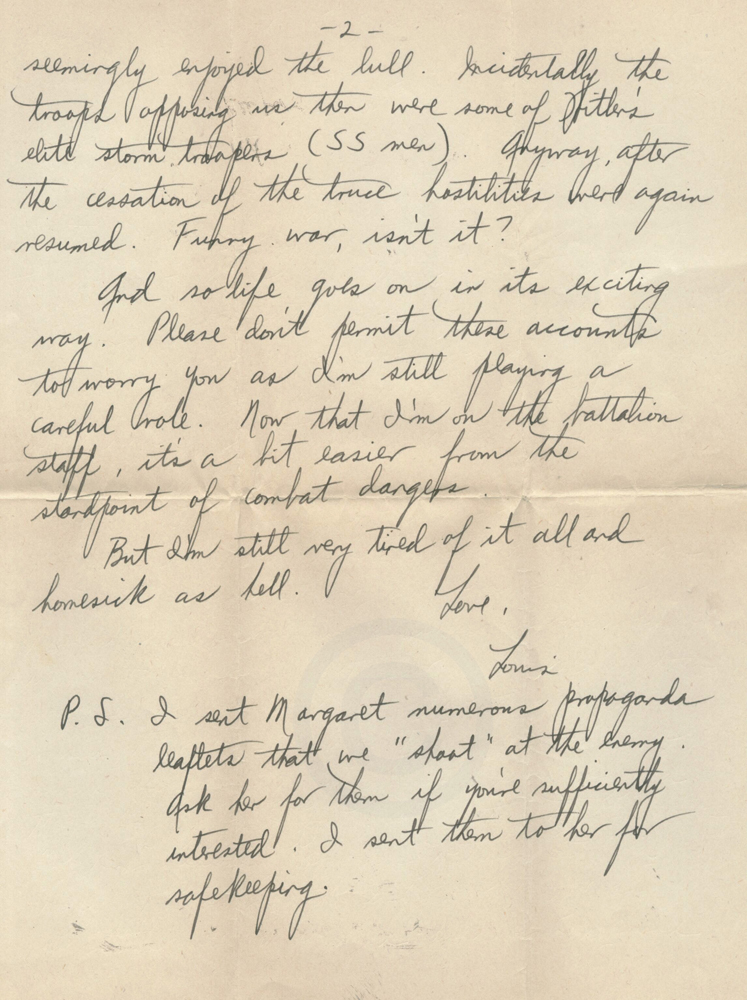 -2-
seemingly enjoyed the lull. Incidentally the
troops opposing us then were some of Hitler's
elite storm troopers (SS men). Anyway, after
the cessation of the truce hostilities were again
resumed. Funny war, isn't it?
And so life goes on in its exciting
way. Please don't permit these accounts
to worry you as I'm still playing a
careful role. Now that I'm on the battalion
staff, it's a bit easier from the
standpoint of combat dangers.
But I'm still very tired of it all and
homesick as hell.
Love,
Louis
P.S. I sent Margaret numerous propaganda
leaflets that we "shoot" at the enemy.
Ask her for them if you're sufficiently
interested. I sent them to her for
safekeeping.